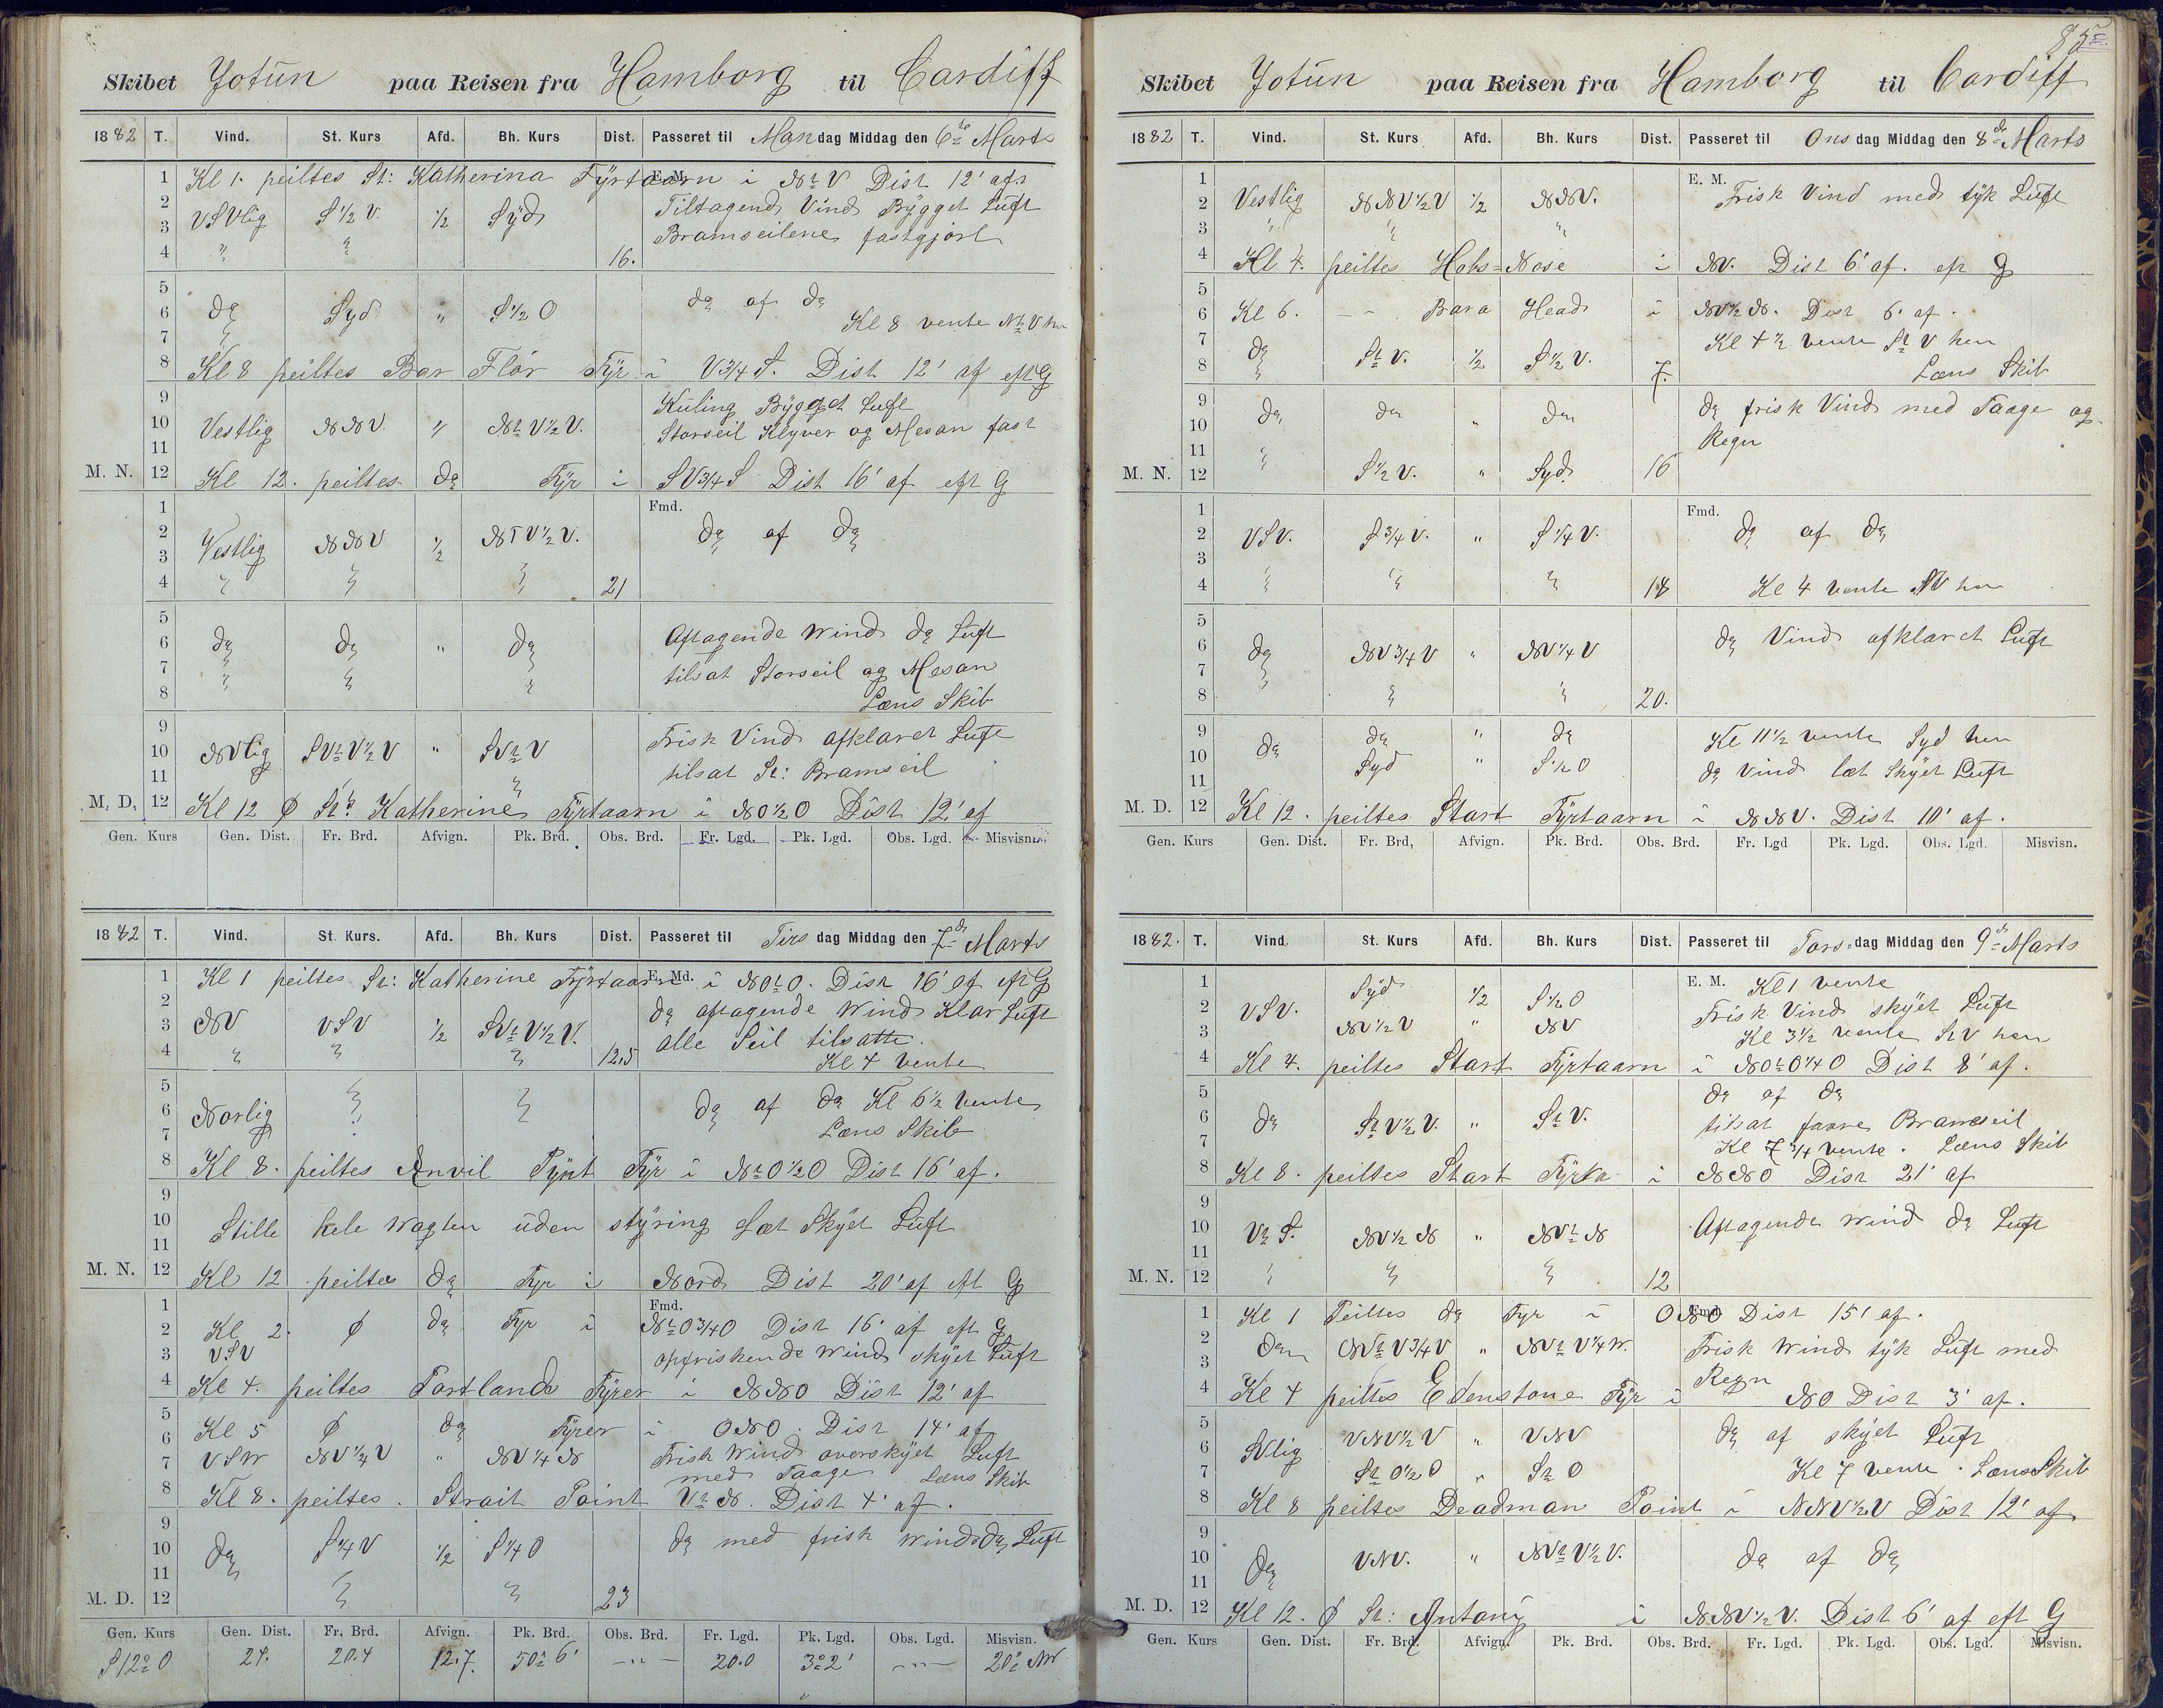 Skibet Jotün paa Reisen fra Hamborg til Cardiff
1882 T. Vind. St. Kurs Afd. Bh. Kurs Dist. Passeret til Mandag Middag den 6te Marts
1 Kl 1. peiltes St: Katherina Fyrtaarn i NtV Dist 12' af
E. M.
2 Tiltagend Vind Bygget Luft
3 VSVlig S 1/2 V. 1/2 Syd Bramseilene fastgjort
4 " " 16.
5
6 do Syd " S 1/2 O do af do
7 Kl 8 vente NtV hen
8 Kl 8 peiltes Bar Flør Fyr i V 3/4 S. Dist 12' af eft G
9 Kuling Bygget Luft
10 Vestlig NNV " NtV 1/2 V. Storseil Klyver og Mesan fast
11
M. N. 12 Kl 12. peiltes do Fyr i SV 3/4 S Dist 16' af eft G
1 Fmd.
2 Vestlig NNV 1/2 NTV 1/2 V. do af do
3
4 " " " 21
5
6 do do " do Aftagende Wind do Luft
7 " " " tilsat Storseil og Mesan
8 Læns Skib
9
10 NVlig SVtV 1/2 V " SVtV Frisk Vind afklaret Luft
11 tilsat St: Bramseil
M. D. 12 Kl 12 Ø St: Katherine Fyrtaarn i NO 1/2 O Dist 12' af
Gen. Kurs Gen. Dist. Fr. Brd. Afvign. Pk. Brd. Obs. Brd. Fr. Lgd. Pk. Lgd. Obs. Lgd. Misvisn.
1882 T. Vind. St. Kurs. Afd. Bh. Kurs Dist. Passeret til Tirsdag Middag den 7de Marts
1 Kl 1 peiltes St: Katherine Fyrtaarn i NOtO. Dist 16' af eft G
E. Md.
2 do aftagende Wind Klar Luft
3 NV VSV 1/2 SVtV 1/2 V. alle Seil tilsatte.
4 " " " 12,5 Kl 4 vente
5
6 Norlig " " do af do Kl 6 1/2 vente
7 Læns Skib
8 Kl 8. peiltes Anvil Pynt Fyr i NtO 1/2 O Dist 16' af.
9
10 Stille hele Wagten uden styring Læt Skyet Luft
11
M. N. 12 Kl 12 peiltes do Fyr i Nord Dist 20' af eft G
1 Fmd.
2 Kl 2. Ø do Fyr i NtO 3/4 O Dist 16' af eft G
3 VSV opfriskende Wind skyet Luft
4 Kl 4. peiltes Portlands Fyrer i NNO Dist 12' af
5 Kl 5 Ø do Fyrer i ONO. Dist 14' af
6 Frisk Wind overskyet Luft
7 VSW NV 1/4 V " NV 1/4 N med Taage Læns Skib
8 Kl 8. peiltes. Strait Point VtN. Dist 4' af.
9
10 do S 1/4 V 1/2 S 1/4 O do med frisk Wind do Luft
11
M. D. 12 " " 23
Gen. Kurs Gen. Dist. Fr. Brd. Afvign. Pk. Brd. Obs. Brd. Fr. Lgd. Pk. Lgd. Obs. Lgd. Misvisn.
S 12° O 24. 20.4 12.7. 50° 6' — " — 20.0 3° 2' — " — 20° NW
85
Skibet Jotün paa Reisen fra Hamborg til Cardiff
1882 T. Vind. St. Kurs Afd. Bh. Kurs Dist. Passeret til Onsdag Middag den 8de Marts
1 E. M.
2 Vestlig NNV 1/2 V 1/2 NNV. Frisk Vind med tyk Luft
3 " " "
4 Kl 4. peiltes Hobs=Nose i NV. Dist 6' af. eft G
5
6 Kl 6. — " Bara Head i NV 1/2 N. Dist 6' af.
7 Kl 4 1/2 vente StV hen
8 do StV. 1/2 S 1/2 V. 7. Læns Skib
9 do do " do do frisk Vind med Taage og
10 Regn
11
M. N. 12 " S 1/2 V. " Syd. 16
1 Fmd.
2 VSV. S 3/4 V. " S 1/4 V. do af do
3
4 " " " 18 Kl 4 vente NV hen
5
6 do NV 3/4 V " NV 1/4 V do Vind afklaret Luft
7
8 " " 20.
9 do do " do Kl 11 1/2 vente Syd hen
10 Syd " S 1/2 O do Vind læt Skyet Luft
11
M. D. 12 Kl 12. peiltes Start Fyrtaarn i NNV. Dist 10' af.
Gen. Kurs Gen. Dist. Fr. Brd, Afvign. Pk. Brd. Obs. Brd. Fr. Lgd Pk. Lgd. Obs. Lgd. Misvisn.
1882. T. Vind. St. Kurs Afd. Bh. Kurs Dist. Passeret til Torsdag Middag den 9de Marts
1 E. M. Kl 1 vente
2 VSV. Syd 1/2 S 1/2 O Frisk Vind skyet Luft
3 NV 1/2 V " NV Kl 3 1/2 vente StV hen
4 Kl 4. peiltes Start Fyrtaarn i NOtO 1/4 O Dist 8' af.
5 do af do
6 do StV 1/2 V. " StV. tilsat forre Bramseil
7 Kl 7 3/4 vente. Læns Skib
8 Kl 8. peiltes Start Fyrta i NNO Dist 21' af
9
10 VtS. NV 1/2 N " NVtN Aftagende Wind do Luft
11
M. N. 12 " " " 12
1 Kl 1 Peiltes do Fyr i ONO Dist 15' af.
Fmd.
2 do NVtV 3/4 V " NVtV 1/4 W. Frisk Wind tyk Luft med
3 Regn
4 Kl 4 peiltes Edenstone Fyr i NO Dist 3' af.
5
6 SVlig VNV 1/2 V " VNV do af skyet Luft
7 StO 1/2 O " StO Kl 7 vente. Læns Skib
8 Kl 8 peiltes Deadman Point i NNV 1/2 V Dist 12' af
9
10 do VNV. " NVtV 1/2 V. do af do
11
M. D. 12 Kl 12. Ø St: Antony i NNV 1/2 V. Dist 6' af eft G
Gen. Kurs Gen. Dist. Fr. Brd. Afvign. Pk. Brd. Obs. Brd. Fr. Lgd. Pk. Lgd. Obs. Lgd. Misvisn.